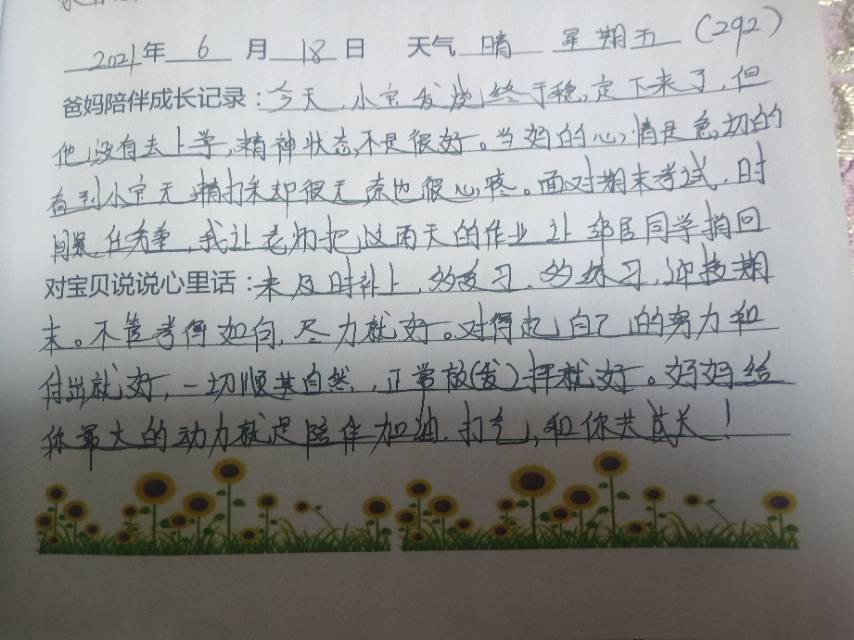 2021年 6 月 18 日 天气 晴 星期五 (292)
爸妈陪伴成长记录：今天，小宝发烧终于稳定下来了，但
他没有去上学，精神状态不是很好。当妈的心情是急切的
看到小宝无精打采却很无奈也很心疼。面对期末考试，时
间紧任务重，我让老师把这两天的作业让邻居同学捎回
对宝贝说说心里话：来及时补上，多复习，多练习，迎接期
末。不管考得如何，尽力就好。对得起自己的努力和
付出就好，一切顺其自然，正常放(发)挥就好。妈妈给
你最大的动力就是陪伴加油，打气，和你共成长！